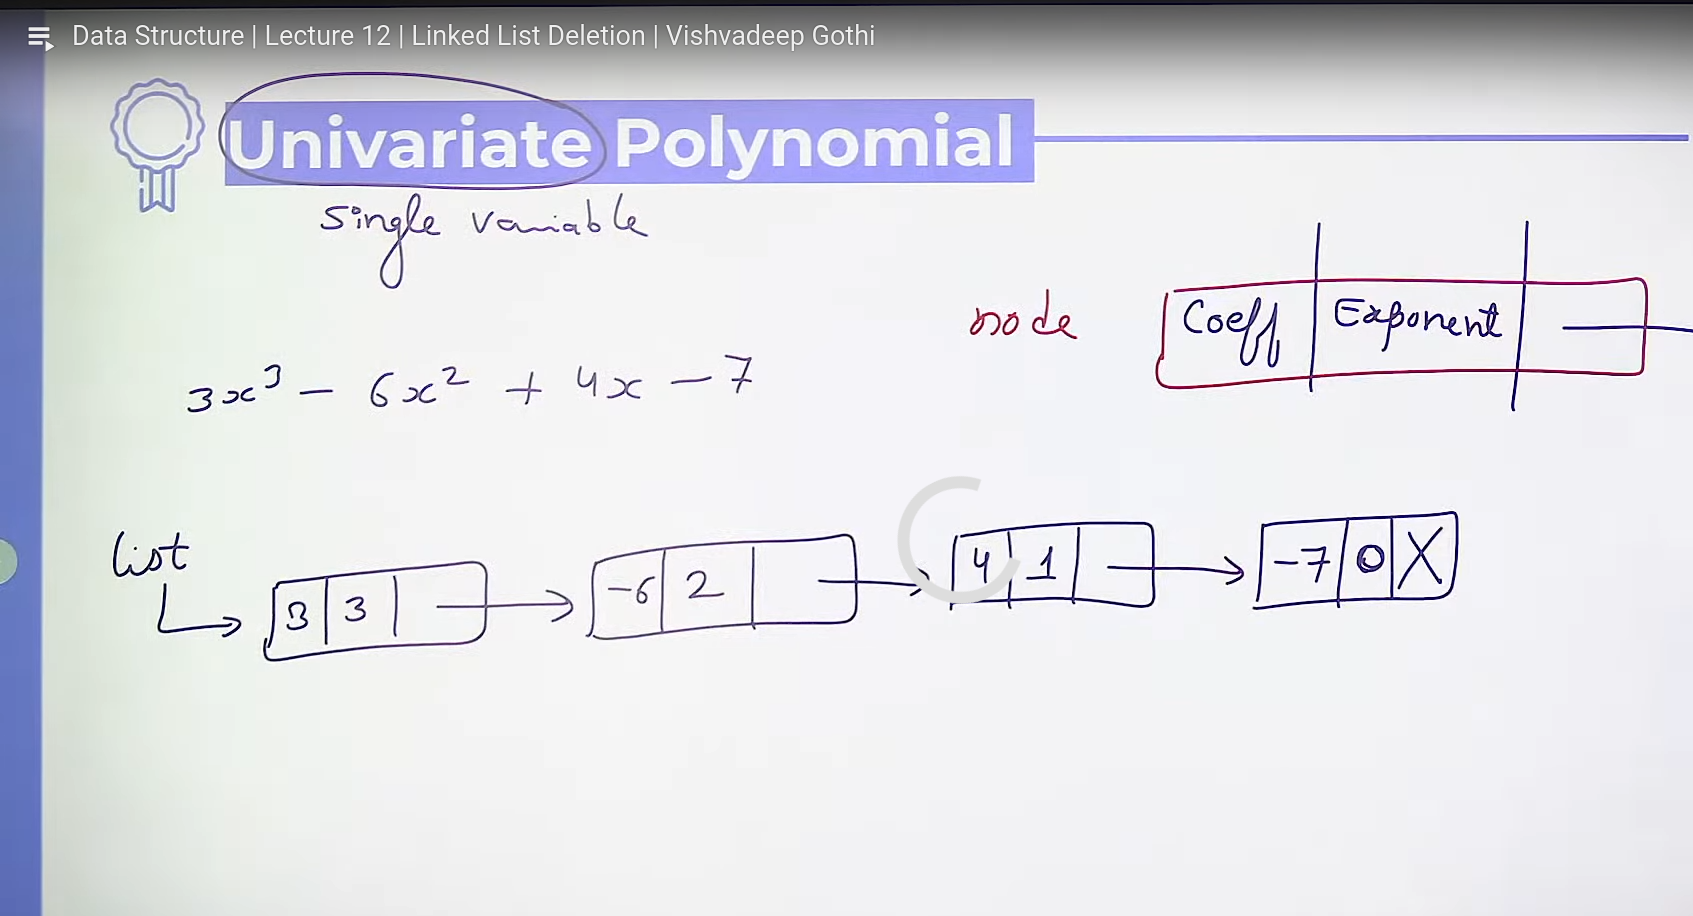 Data Structure | Lecture 12 | Linked List Deletion | Vishvadeep Gothi
Univariate Polynomial
Single variable
node Coeff Exponent
3x³ - 6x² + 4x - 7
list
3 3 -6 2 4 1 -7 0 X